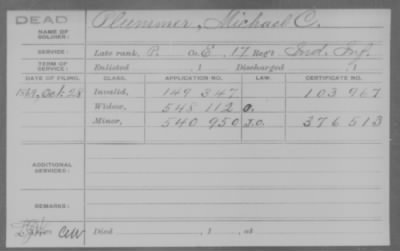 DEAD
NAME OF SOLDIER: Plummer, Michael C.
SERVICE: Late rank, P. Co. E, 17 Reg't Ind. Inf.
TERM OF SERVICE: Enlisted , 1 Discharged , 1
DATE OF FILING. CLASS. APPLICATION NO. LAW. CERTIFICATE NO.
Oct. 28 Invalid, 149 347 103 967
Widow, 548 112 O.
Minor, 540 950 J.O. 376 513
ADDITIONAL SERVICES:
REMARKS:
Died , 1 , at